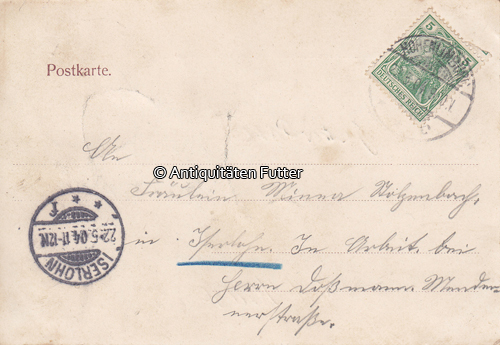 Postkarte.
5 5
DEUTSCHES REICH
HOHENLIMBURG
An
© Antiquitäten Futter
Fräulein Minna Stolzenbach,
in Iserlohn. In Arbeit bei
Herrn Doßmann. Menden-
nerstraße.
ISERLOHN
22.5.04.11-12V.